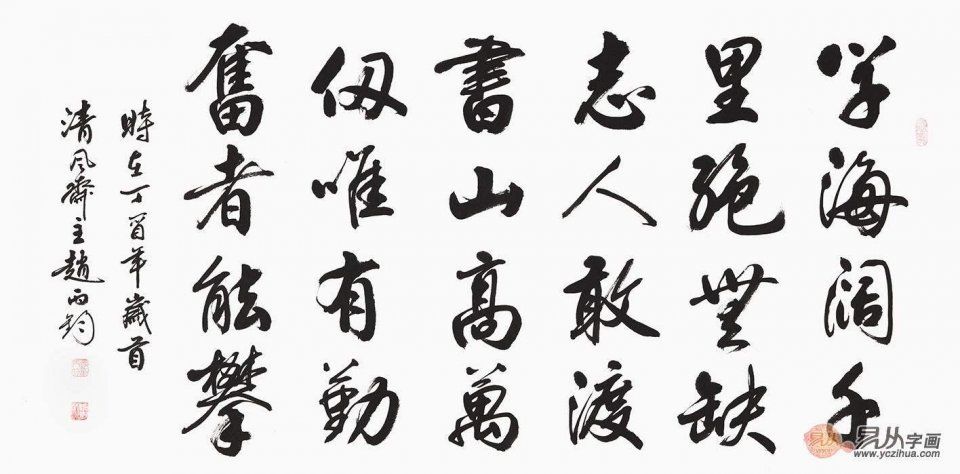 学海阔千
里絶無缺
志人敢渡
書山高萬
仞唯有勤
奮者能攀
時在丁酉年歲首
清风齋主趙丙鈞
易从字画
www.yczihua.com